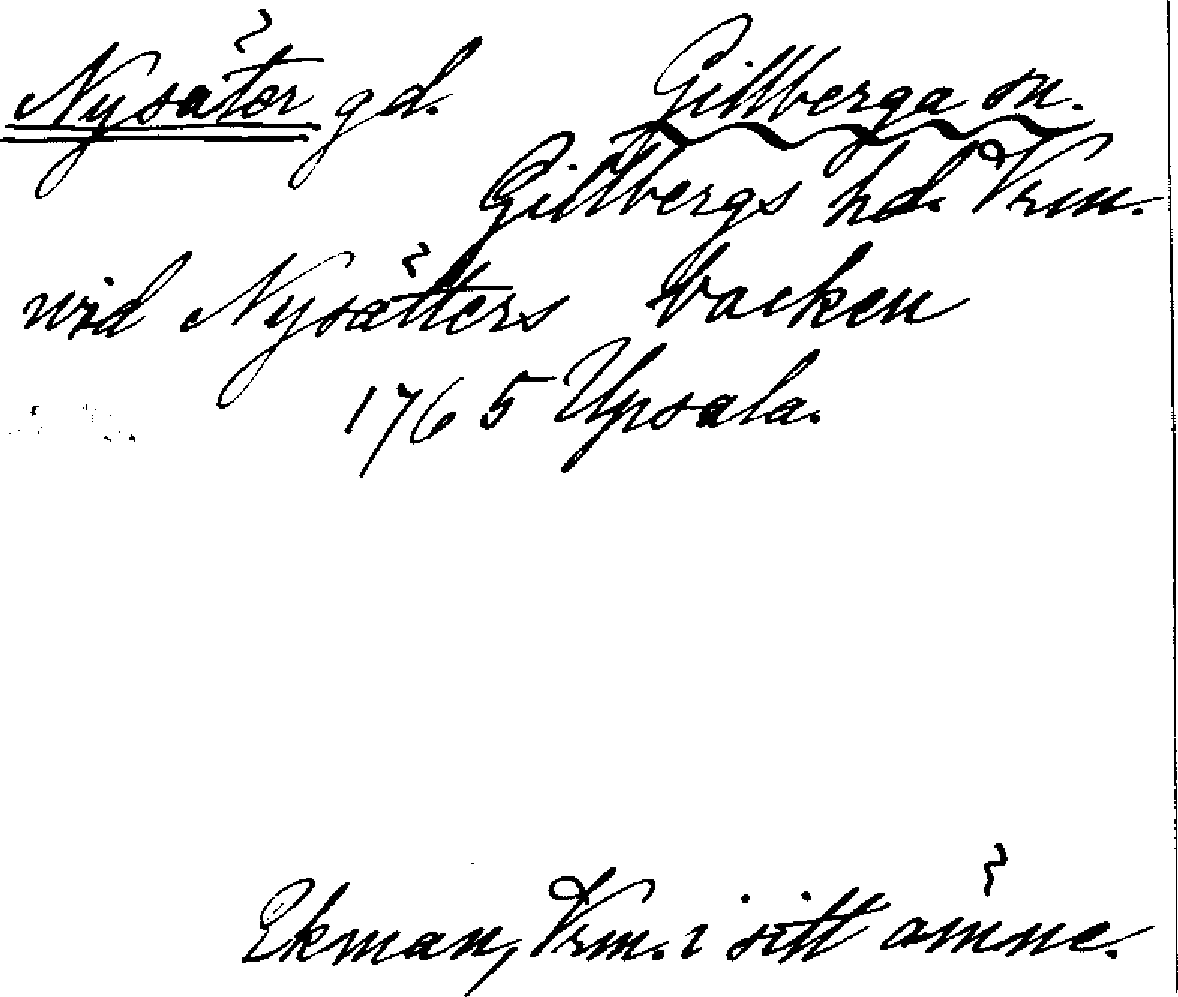 Nysäter gd. Gillberga sn.
Gillbergs hd. Vrm.
wid Nysätters backen
1765 Upsala.
Ekman, Vrm. i sitt ämne.